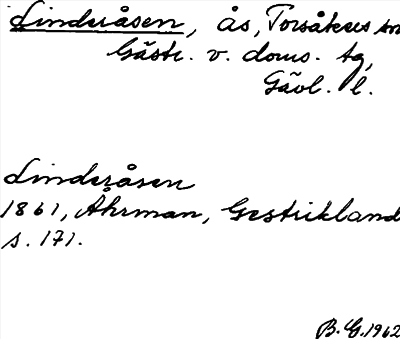 Linderåsen, ås, Torsåkers sn
Gästr. v. doms. tg,
Gävl. l.
Linderåsen
1861, Åhrman, Gestrikland
s. 171.
B.G. 1962